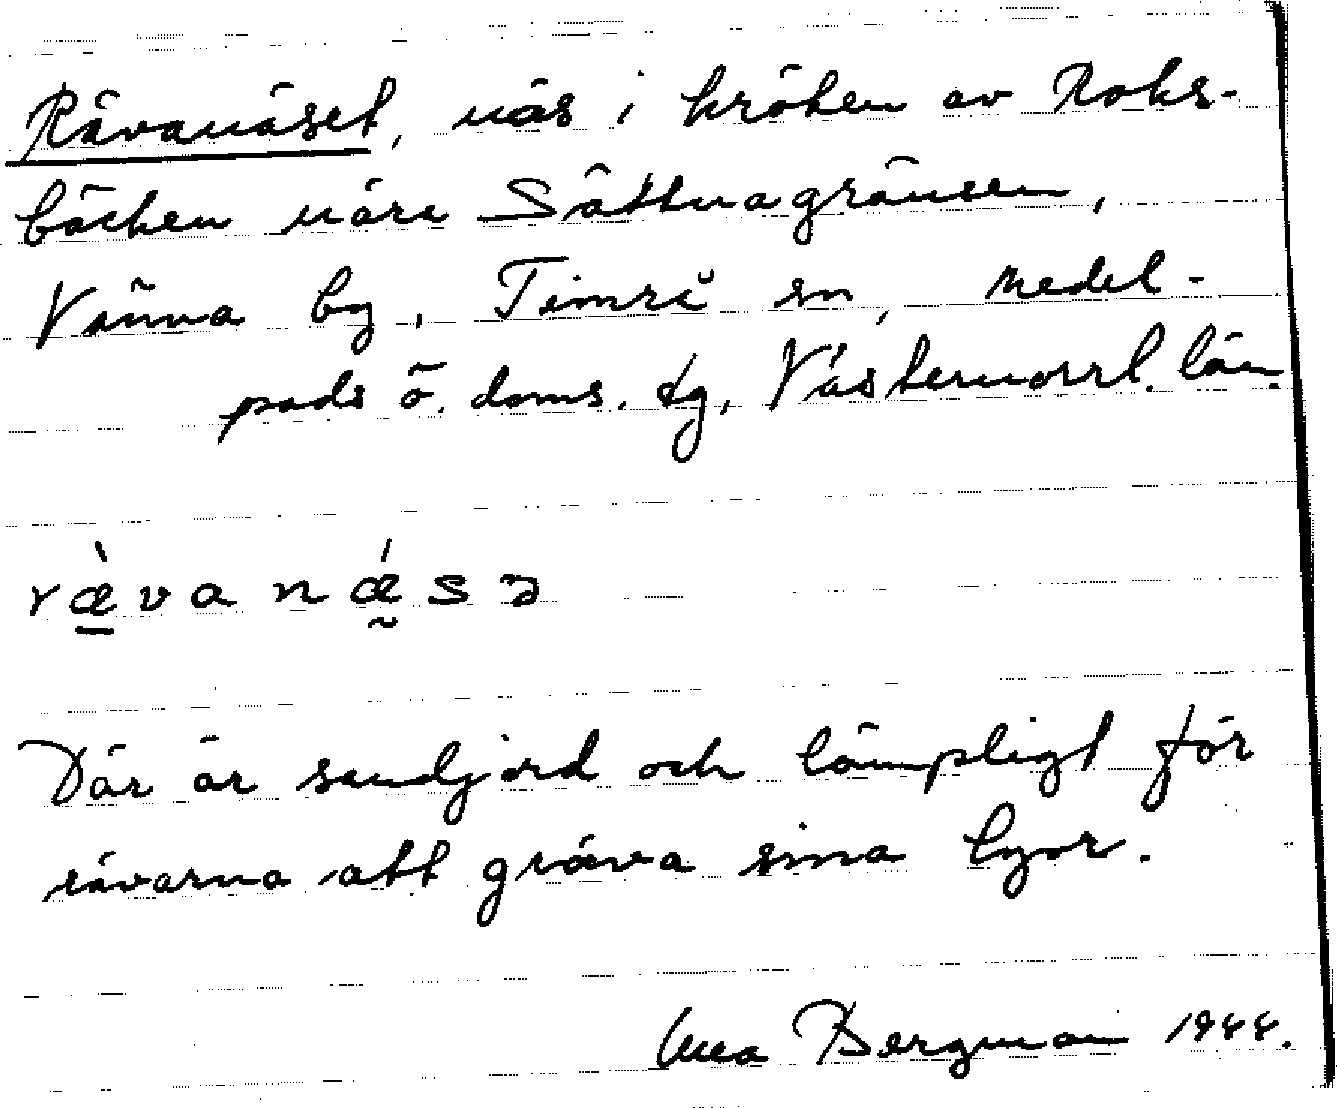 Rävanäset, näs i kröken av Roks-
bäcken nära Sättnagränsen,
Vänna by, Timrå sn, Medel-
pads ö. doms. tg, Västernorrl. län.
ræ̀vanǽsə
Där är sandjord och lämpligt för
rävarna att gräva sina lyor.
Bergman 1944.